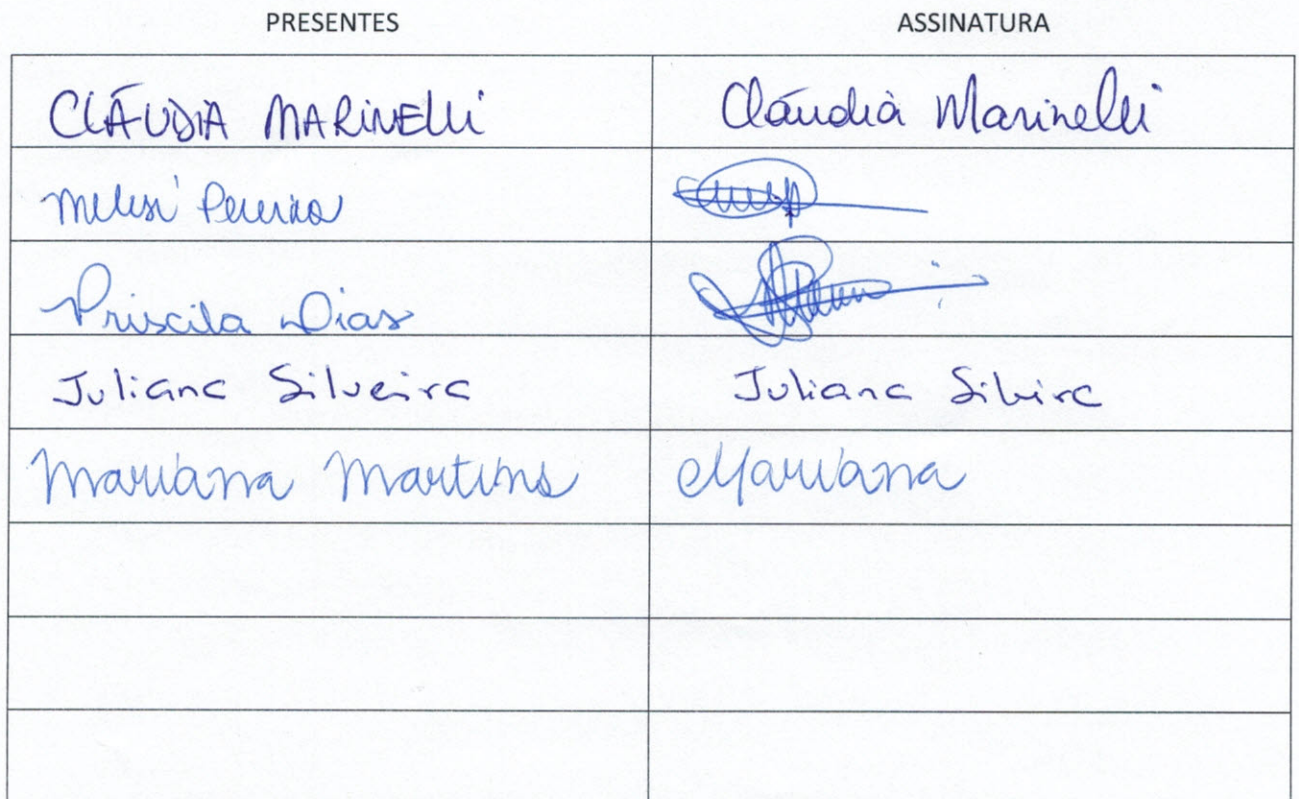 PRESENTES ASSINATURA
CLÁUDIA MARINELLI Cláudia Marinelli
Pereira
Priscila Dias
Juliana Silveira Juliana Silveira
Mariana Martins Mariana